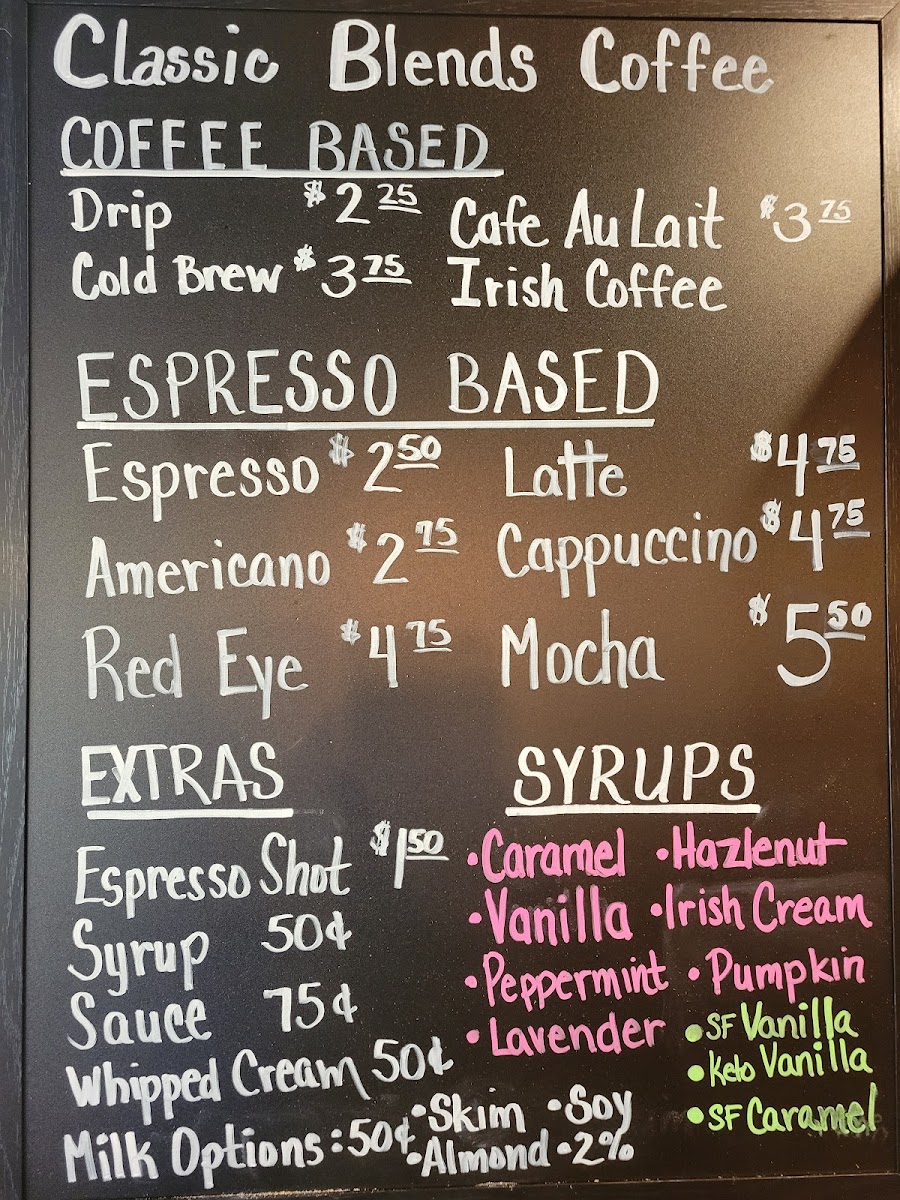 Classic Blends Coffee
COFFEE BASED
Drip $2.25 Cafe Au Lait $3.75
Cold Brew $3.75 Irish Coffee
ESPRESSO BASED
Espresso $2.50 Latte $4.75
Americano $2.75 Cappuccino $4.75
Red Eye $4.75 Mocha $5.50
EXTRAS
Espresso Shot $1.50
Syrup 50¢
Sauce 75¢
Whipped Cream 50¢
Milk Options: 50¢ •Skim •Soy
•Almond •2%
SYRUPS
•Caramel •Hazlenut
•Vanilla •Irish Cream
•Peppermint •Pumpkin
•Lavender •SF Vanilla
•Keto Vanilla
•SF Caramel